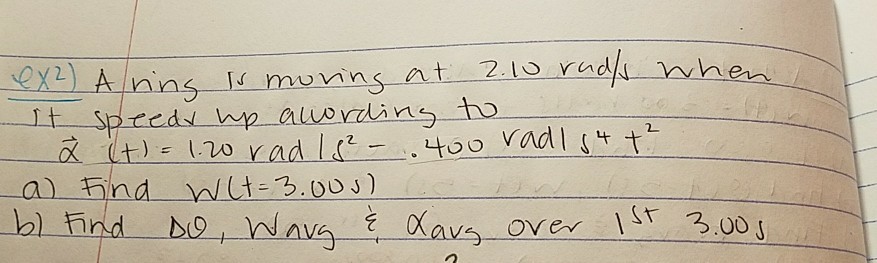 ex2) A ring is moving at 2.10 rad/s when
it speeds up according to
α⃗ (t) = 1.20 rad/s² - .400 rad/s⁴ t²
a) Find W(t=3.00s)
b) Find ΔΘ, Wavg & αavg over 1st 3.00s